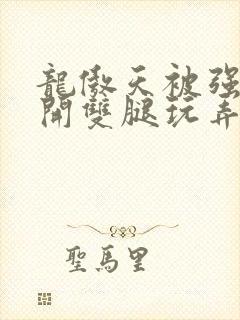 龍傲天被强
開雙腿玩弄
聖馬里